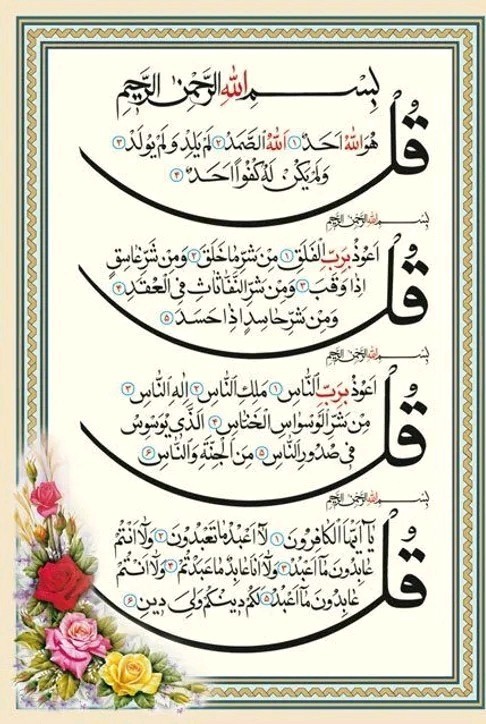 بِسْمِ اللهِ الرَّحْمٰنِ الرَّحِيمِ
قُلْ
هُوَ اللهُ اَحَدٌ ١ اَللهُ الصَّمَدُ ٢ لَمْ يَلِدْ وَلَمْ يُولَدْ ٣
وَلَمْ يَكُنْ لَهُ كُفُوًا اَحَدٌ ٤
بِسْمِ اللهِ الرَّحْمٰنِ الرَّحِيمِ
قُلْ
اَعُوذُ بِرَبِّ الْفَلَقِ ١ مِنْ شَرِّ مَا خَلَقَ ٢ وَمِنْ شَرِّ غَاسِقٍ
اِذَا وَقَبَ ٣ وَمِنْ شَرِّ النَّفَّاثَاتِ فِي الْعُقَدِ ٤
وَمِنْ شَرِّ حَاسِدٍ اِذَا حَسَدَ ٥
بِسْمِ اللهِ الرَّحْمٰنِ الرَّحِيمِ
قُلْ
اَعُوذُ بِرَبِّ النَّاسِ ١ مَلِكِ النَّاسِ ٢ اِلٰهِ النَّاسِ ٣
مِنْ شَرِّ الْوَسْوَاسِ الْخَنَّاسِ ٤ اَلَّذِي يُوَسْوِسُ
فِي صُدُورِ النَّاسِ ٥ مِنَ الْجِنَّةِ وَالنَّاسِ ٦
بِسْمِ اللهِ الرَّحْمٰنِ الرَّحِيمِ
قُلْ
يَا اَيُّهَا الْكَافِرُونَ ١ لَا اَعْبُدُ مَا تَعْبُدُونَ ٢ وَلَا اَنْتُمْ
عَابِدُونَ مَا اَعْبُدُ ٣ وَلَا اَنَا عَابِدٌ مَا عَبَدْتُمْ ٤ وَلَا اَنْتُمْ
عَابِدُونَ مَا اَعْبُدُ ٥ لَكُمْ دِينُكُمْ وَلِيَ دِينِ ٦